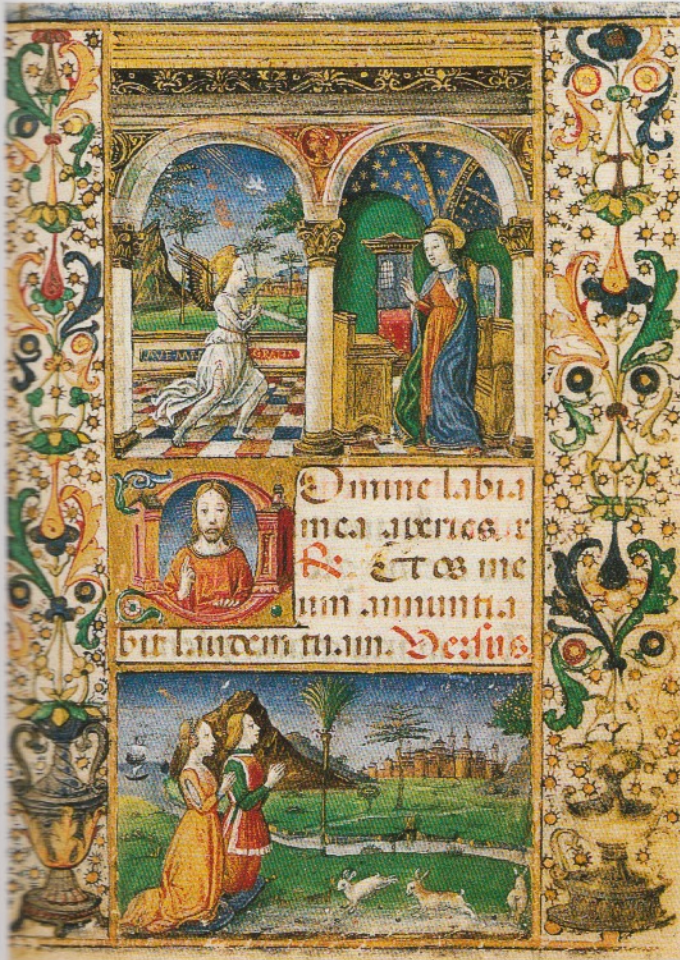 AVE MA GRATIA
Domine labia
mea aperies.
R. Et os me
um annuntia
bit laudem tuam. Versus.